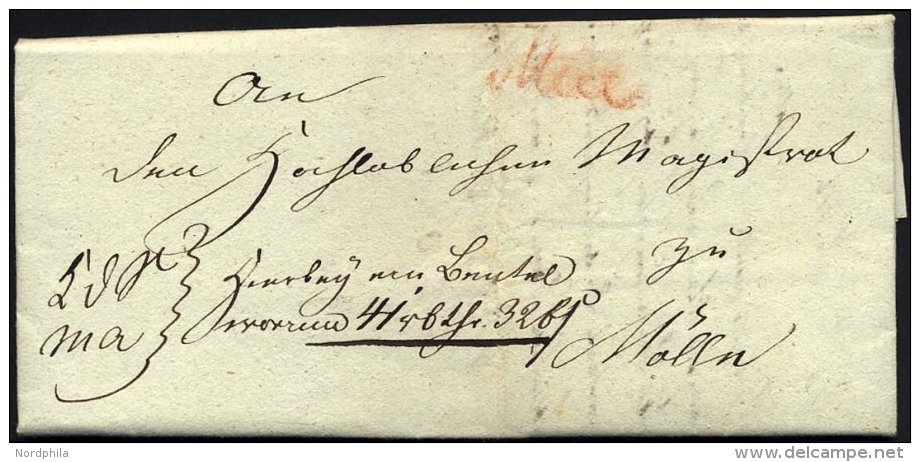 An
den Hochloblichen Magistrat
zu
Mölln
Hierbey ein Beutel
worinn 41 rbthr. 32 bß
M A
Nordphila
delcampe.net